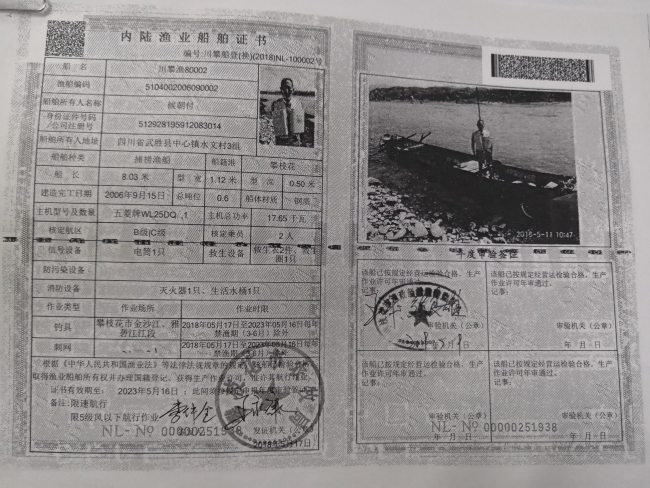 内陆渔业船舶证书
编号:川攀船登(换)(2018)NL-100002号
船 名 川攀渔80002
渔船编码 5104002006090002
船舶所有人名称 侯朝付
身份证件号码/公司注册号 512928195912083014
船舶所有人地址 四川省武胜县中心镇水文村3组
船舶种类 捕捞渔船 船籍港 攀枝花
船 长 8.03 米 型 宽 1.12 米 型 深 0.50 米
建造完工日期 2006年9月15日 总吨位 0.6 船体材质 钢质
主机型号及数量 五菱牌WL25DQ ,1 主机总功率 17.65 千瓦
核定航区 B级|C级 核定乘员 2 人
信号设备 电筒1只 救生设备 救生衣2件、救生圈1只
防污染设备
消防设备 灭火器1只、生活水桶1只
作业类型 作业场所 作业时限
钓具 攀枝花市金沙江、雅砻江江段 2018年05月17日至2023年05月16日每年禁渔期(3-6月)除外
刺网 2018年05月17日至2023年05月16日每年禁渔期(3-6月)除外
根据《中华人民共和国渔业法》等法律法规
取得渔业船舶所有权并办理国籍登记，获得生产作业许可，准许其航行作业。
证书有效期至: 2023年5月16日
备注:限速航行
限5级风以下航行作业
发证机关
2018年5月17日
NL- № 00000251938
2018-5-11 10:47
年度审验签证
该船已按规定经营运检验合格，生产作业许可年审通过。
记事:
审验机关（公章）
该船已按规定经营运检验合格，生产作业许可年审通过。
记事:
审验机关（公章）
年 月 日
该船已按规定经营运检验合格，生产作业许可年审通过。
记事:
审验机关（公章）
年 月 日
该船已按规定经营运检验合格，生产作业许可年审通过。
记事:
审验机关（公章）
年 月 日
NL- № 00000251938